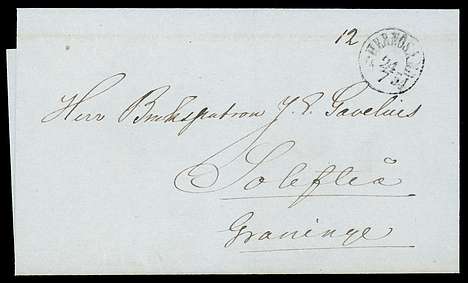 12
HERNÖSAND
24
7
Herr Brukspatron J. E. Gavelius
Solefteå
Graninge